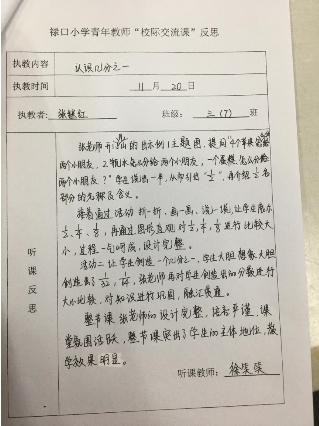 禄口小学青年教师“校际交流课”反思
执教内容 认识几分之一
执教时间 11 月 20 日
执教者: 张 红 班级: 三(7) 班
张老师开门见山的出示例1主题图,提问“4个苹果平均分给
两个小朋友,2瓶水怎么分给两个小朋友,一个蛋糕怎么分给
两个小朋友?”学生读出一半,从而引出“½”,再介绍½各
部分的名称及含义。
接着通过活动折一折、画一画、说一说,让学生感知
½、¼、⅛,再通过图形直观对½、¼、⅛进行比较大
小,过程一气呵成,设计完整。
活动二让学生创造一个几分之一,学生大胆想象大胆
创造出了1/32,1/64,张老师再对学生创造出的分数进行
大小比较,对知识进行巩固,融汇贯通。
整节课张老师的设计完整,语言严谨,课
堂氛围活跃,整节课突出了学生的主体地位,教
学效果明显。
听课反思
听课教师: 徐荣荣